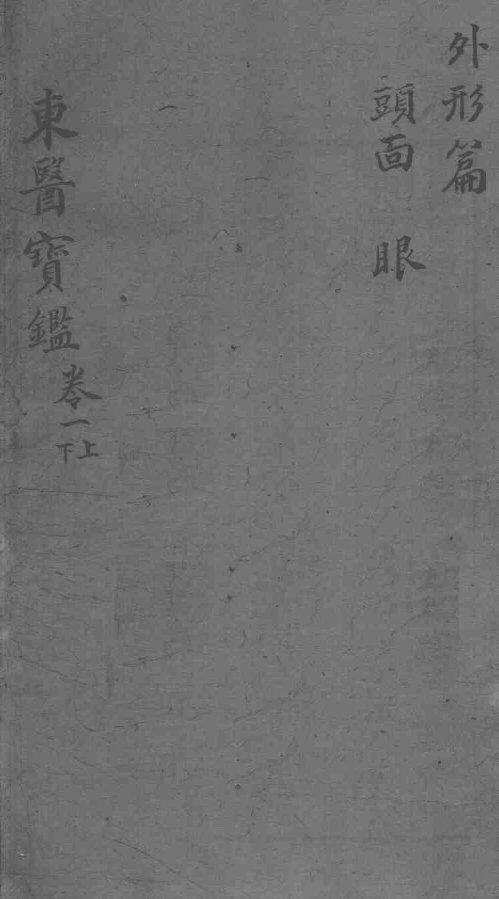 外形篇
頭面 眼
東醫寶鑑 卷一上下